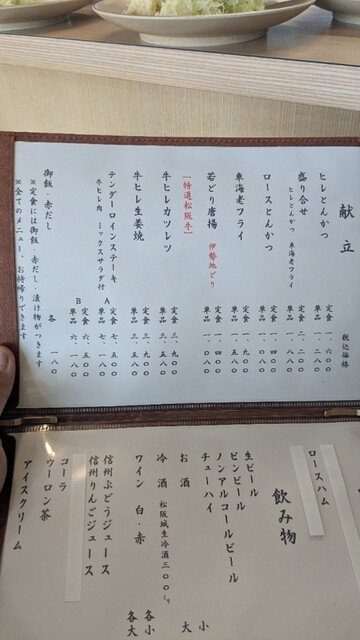 献立
税込価格
ヒレとんかつ
定食 一、六〇〇
単品 一、二八〇
盛り合せ
ヒレとんかつ 車海老フライ
定食 二、二〇〇
単品 一、八八〇
ロースとんかつ
定食 一、四〇〇
単品 一、〇八〇
車海老フライ
定食 一、九〇〇
単品 一、五八〇
若どり唐揚 伊勢地どり
定食 一、四〇〇
単品 一、〇八〇
【特選松阪牛】
牛ヒレカツレツ
定食 三、九〇〇
単品 三、五八〇
牛ヒレ生姜焼
定食 三、九〇〇
単品 三、五八〇
テンダーロインステーキ
牛ヒレ肉 ミックスサラダ付
A 定食 七、五〇〇
単品 七、一八〇
B 定食 六、五〇〇
単品 六、一八〇
御飯・赤だし 各 一八〇
※定食には御飯・赤だし・漬け物がつきます
※全てのメニュー、お持帰りできます
ロースハム
飲み物
生ビール
ビンビール
ノンアルコールビール
チューハイ
お酒 大 小
冷酒 松阪城生冷酒三〇〇㍉
ワイン 白・赤
各小
各大
信州ぶどうジュース
信州りんごジュース
コーラ
ウーロン茶
アイスクリーム